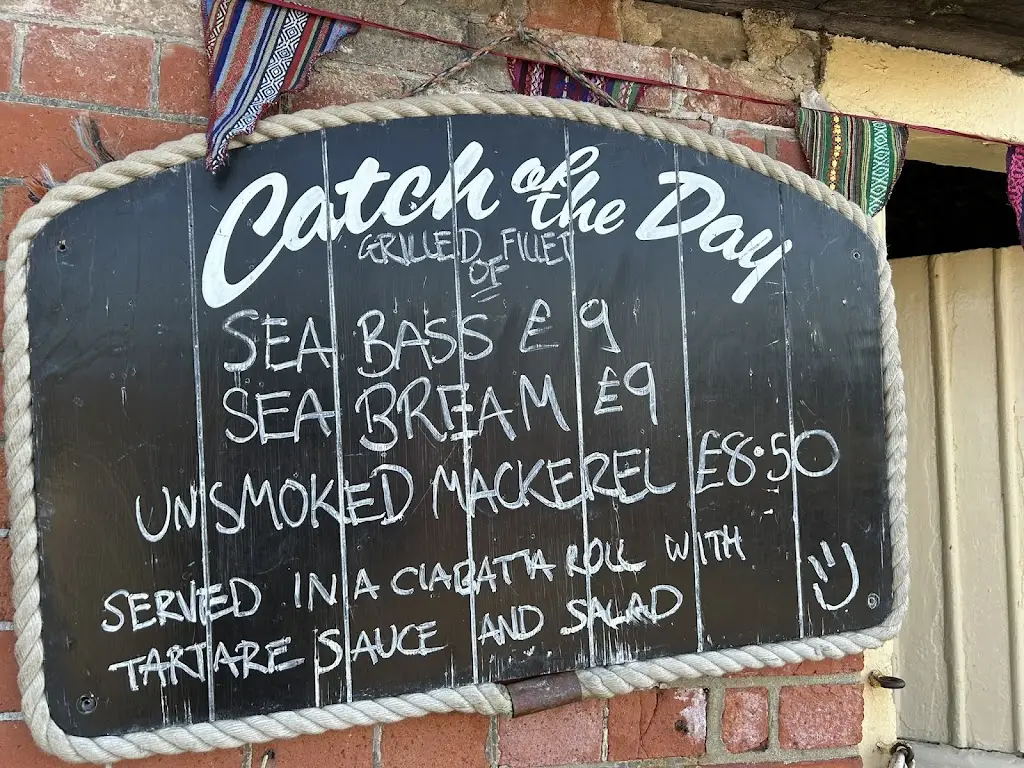 Catch of the Day
GRILLED FILLET
OF
SEA BASS £9
SEA BREAM £9
UNSMOKED MACKEREL £8.50
SERVED IN A CIABATTA ROLL WITH
TARTARE SAUCE AND SALAD